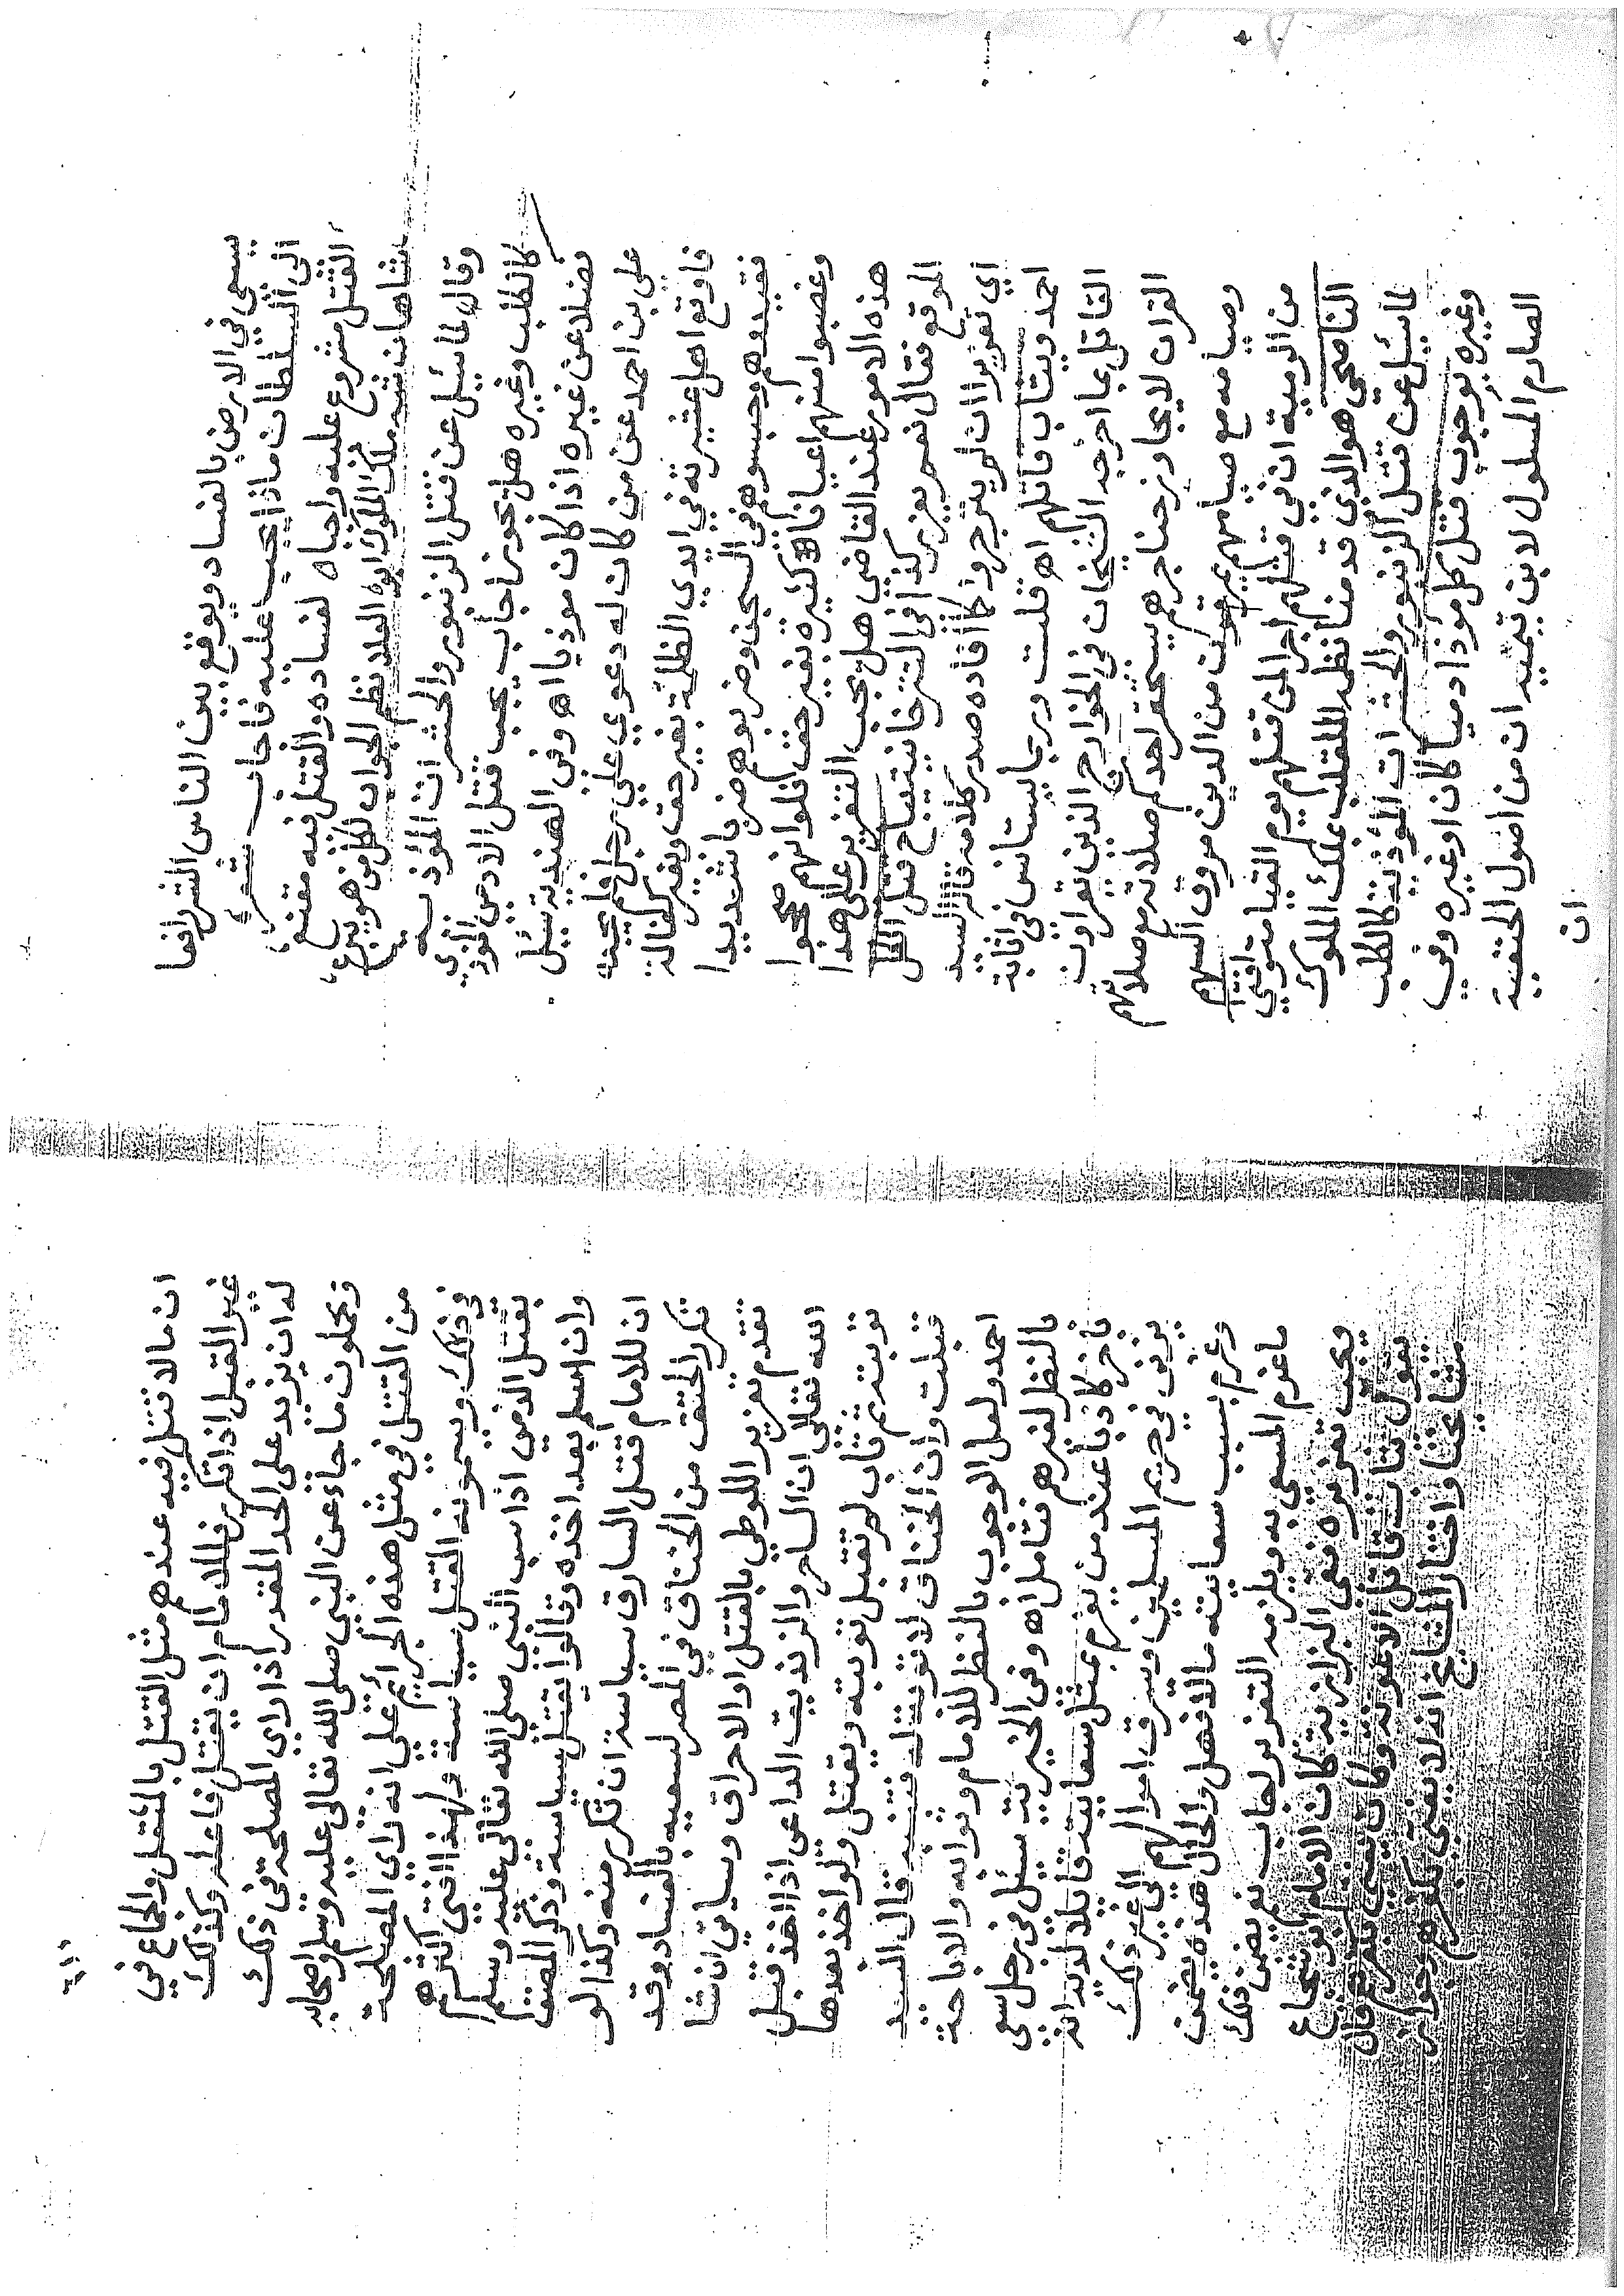 يسعى في الارض بالفساد ويوقع بين الناس الشر انما
الى السلطات ماذا يجب عليه فاجاب شعرا
القتل مشروع عليه واجبا لفساده والقتل فيه مقنع
شاهان شه ملك الملوك ابو العلا نظم الجواب لكل من هو يبرع
وقال لما سئل عن قتل الزنبور والحشرات المؤذيه
كالكلب وغيره هل يجوز اجاب يجب قتل الادمي المؤذي
فضلا عن غيره اذا كان موذيا اه وفي الهندية سئل
علي بن احمد عن من كان له دعوي علي رجل فلم يجده
فاوقع اهل عشيرته في ايدي الظلمة بغير حق وبغير كفالة
فقيدوهم وحبسوهم في السجن وضربوهم ضربا شديدا
وغصبوا منهم اعيانا كثيرة بغير حق فلو انهم صححوا
هذه الامور عند القاضي هل يجب التعزير على هذا
الموقع فقال نعم يعزر كذا في التترخانية يباح قتل الكل
اي تعزيرا ان لم ينزجروا كما افاده صدر كلامه قاله السيد
احمد ويثاب قاتلهم اه قلت وربما يستانس في اثابة
القاتل بما اخرجه الشيخان في الخوارج الذين يقراون
القران لا يجاوز حناجرهم يستحقر احدكم صلاته مع صلاتهم
وصيامه مع صيامهم يمرقون من الدين مروق السهم
من الرمية ان في قتلهم اجرا لمن قتلهم يوم القيامة وافتى
الناصحي هو الذي قدمنا نظمه الملقب بملك الملوك
لما سئل عن قتل الزنبور والحشرات المؤذية كالكلب
وغيره بوجوب قتل كل موذ ادميا كان او غيره وفي
الصارم المسلول لابن تيمية ان من اصول الحنفية
ان
ان ما لا قتل فيه عندهم مثل القتل بالمثقل والجماع في
غير القبل اذا تكرر فللامام ان يقتل فاعله وكذلك
له ان يزيد على الحد المقدر اذا راي المصلحة في ذلك
ويحملون ما جاء عن النبي صلى الله تعالى عليه وسلم واصحابه
من القتل في مثل هذه الجرائم على انه راي المصلحة
في ذلك ويسمونه القتل سياسة ولهذا افتى اكثرهم
بقتل الذمي اذا سب النبي صلى الله تعالى عليه وسلم
وان اسلم بعد اخذه وقالوا يقتل سياسة وذكر المصنف
ان للامام قتل السارق سياسة ان تكرر منه وكذا لو
تكرر الخنق من الخناق في المصر لسعيه بالفساد وقد
تقدم تعزير اللوطي بالقتل او الاحراق وسياتي ان شا
الله تعالى ان الساحر والزنديق الداعي اذا اخذ قبل
توبته ثم تاب لم تقبل توبته ويقتل ولو اخذ بعدها
قبلت وان الخناق لا توبة له فتنبه قال السيد
احمد ولعل الوجوب بالنظر للامام وثوابه والاباحة
بالنظر لغيرهم فتامل اه وفي الخيرية سئل في رجل سعى
باخر كاذبا عند من يغرم بمثل سعايته قايلا لديه انه
يزني في حريم المسلمين وسرق اموالهم الى غير ذلك
وغرم بسبب سعايته مالا فهل والحال هذه يضمن
ما غرم المسعى به ويلزمه التعزير اجاب نعم يضمن ذلك
ويجب تعزيره ففي البزازية كان الامام ابو شجاع
يقول يثاب قاتل الاعونة وكان يفتي بكفرهم قال
مشايخنا واختار المشايخ انه لا يفتي بكفرهم وجواز